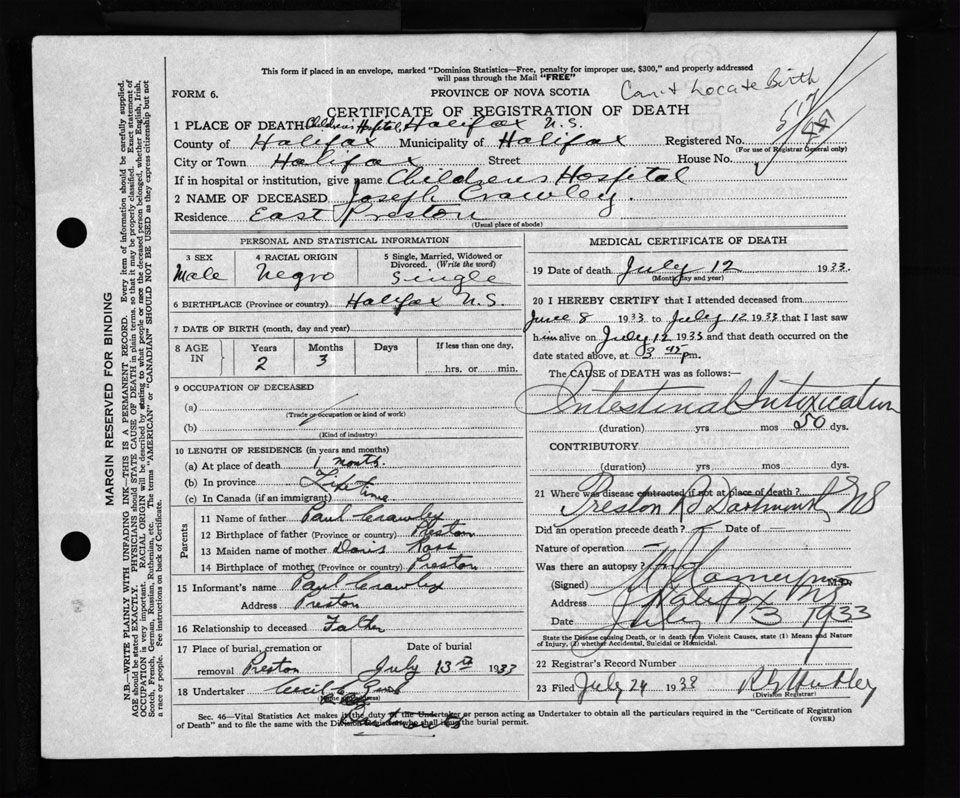 This form if placed in an envelope, marked "Dominion Statistics—Free, penalty for improper use, $300," and properly addressed
will pass through the Mail "FREE"
FORM 6.
PROVINCE OF NOVA SCOTIA
Can't Locate Birth
CERTIFICATE OF REGISTRATION OF DEATH
1 PLACE OF DEATH Children's Hospital, Halifax N.S.
County of Halifax Municipality of Halifax Registered No.
(For use of Registrar General only)
City or Town Halifax Street House No.
If in hospital or institution, give name Childrens Hospital
2 NAME OF DECEASED Joseph Crawley.
Residence East Preston
(Usual place of abode)
PERSONAL AND STATISTICAL INFORMATION
3 SEX
Male
4 RACIAL ORIGIN
Negro
5 Single, Married, Widowed or
Divorced. (Write the word)
Single
6 BIRTHPLACE (Province or country) Halifax N.S.
7 DATE OF BIRTH (month, day and year)
8 AGE
IN
Years
2
Months
3
Days
If less than one day,
hrs. or min.
9 OCCUPATION OF DECEASED
(a)
(Trade or occupation or kind of work)
(b)
(Kind of industry)
10 LENGTH OF RESIDENCE (in years and months)
(a) At place of death 1 month.
(b) In province Life time
(c) In Canada (if an immigrant)
Parents
11 Name of father Paul Crawley
12 Birthplace of father (Province or country) Preston
13 Maiden name of mother Doris Ross
14 Birthplace of mother (Province or country) Preston
15 Informant's name Paul Crawley
Address Preston
16 Relationship to deceased Father
17 Place of burial, cremation or
removal Preston
Date of burial
July 13th 1933
18 Undertaker Cecil E.
MEDICAL CERTIFICATE OF DEATH
19 Date of death July 12 1933.
(Month, day and year)
20 I HEREBY CERTIFY that I attended deceased from
June 8 1933 to July 12 1933 that I last saw
him alive on July 12 1933 and that death occurred on
date stated above, at 3 45 pm.
The CAUSE of DEATH was as follows:—
Intestinal Intoxication
(duration) yrs mos 50 dys.
CONTRIBUTORY
(duration) yrs. mos. dys.
21 Where was disease contracted if not at place of death?
Preston Rd Dartmouth NS
Did an operation precede death? Date of
Nature of operation —
Was there an autopsy?
(Signed) M.D.
Address Halifax NS
Date July 13 1933
State the Disease causing Death, or in death from Violent Causes, state (1) Means and Nature
of Injury, (2) whether Accidental, Suicidal or Homicidal.
22 Registrar's Record Number
23 Filed July 24 1938
(Division Registrar)
Sec. 46—Vital Statistics Act makes it the duty of the Undertaker or person acting as Undertaker to obtain all the particulars required in the "Certificate of Registration
of Death" and to file the same with the Division Registrar who shall issue the burial permit.
(OVER)
MARGIN RESERVED FOR BINDING
N.B.—WRITE PLAINLY WITH UNFADING INK—THIS IS A PERMANENT RECORD. Every item of information should be carefully supplied.
AGE should be stated EXACTLY. PHYSICIANS should STATE CAUSE OF DEATH in plain terms, so that it may be properly classified. Exact statement of
OCCUPATION is very important. RACIAL ORIGIN will be described by stating to what people or race the deceased person belonged, whether English, Irish,
Scotch, French, German, Russian, Ruthenian, etc. The terms "AMERICAN" or "CANADIAN" SHOULD NOT BE USED as they express citizenship but not
a race or people. See instructions on back of Certificate.